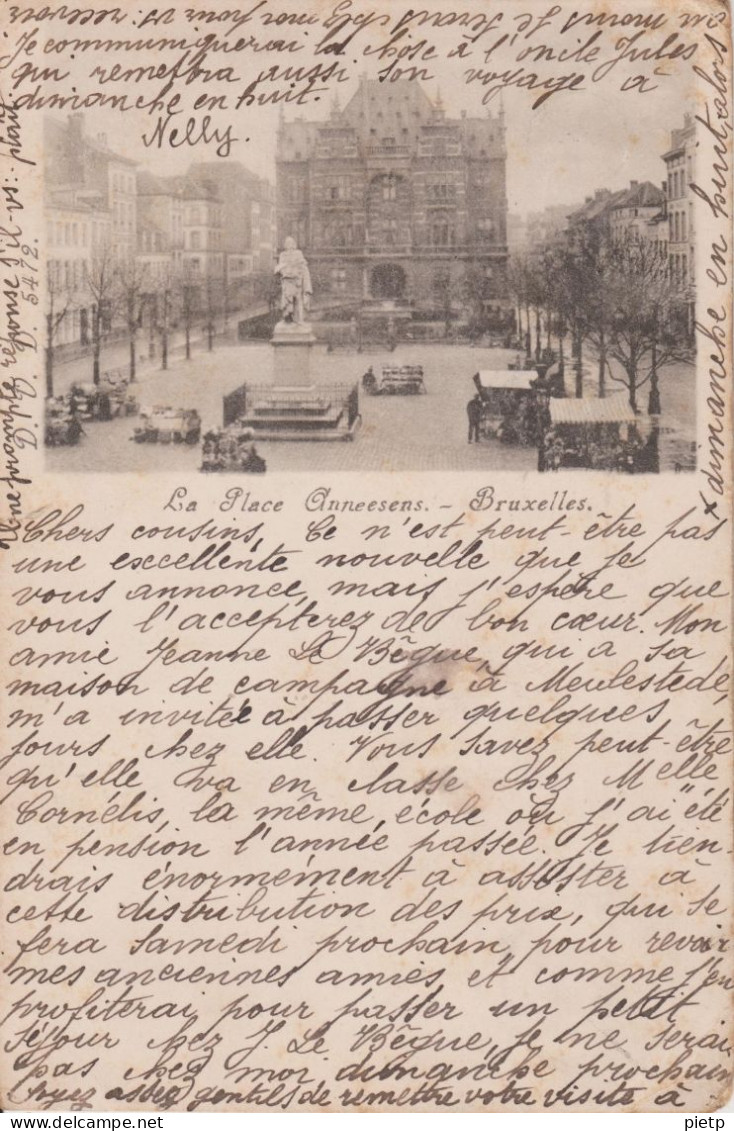 La Place Anneesens. - Bruxelles.
Chers cousins, Ce n'est peut-être pas
une excellente nouvelle que je
vous annonce, mais j'espère que
vous l'accepterez de bon cœur. Mon
amie Jeanne Le Bêgue, qui a sa
maison de campagne à Meulestede,
m'a invitée à passer quelques
jours chez elle. Vous savez peut-être
qu'elle va en classe chez Melle
Cornélis, la même école où j'ai été
en pension l'année passée. Je tien-
drais énormément à assister à
cette distribution des prix, qui se
fera samedi prochain, pour revoir
mes anciennes amies et comme j'en
profiterai pour passer un petit
séjour chez J. Le Bêgue, je ne serai
pas chez moi dimanche prochain
Soyez assez gentils de remettre votre visite à
x dimanche en huit, alors
je serai chez moi pour vs: recevoir
Je communiquerai la chose à l'oncle Jules
qui remettra aussi son voyage à
dimanche en huit.
Nelly.
Une prompte réponse s'il-vs: plaît
D. V. D. 5472.
pietp